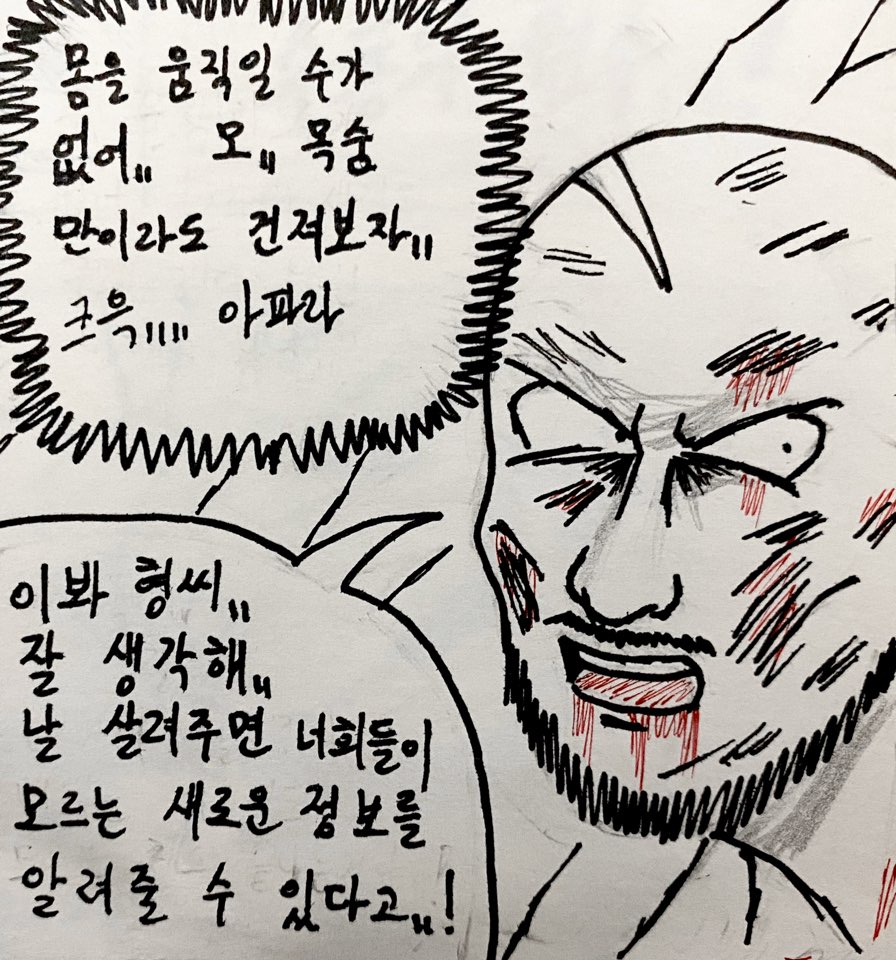 몸을 움직일 수가
없어,, 모,, 목숨
만이라도 건져보자,,
크윽,,,,, 아파라
이봐 형씨,,
잘 생각해,,
날 살려주면 너희들이
모르는 새로운 정보를
알려줄 수 있다고,,!